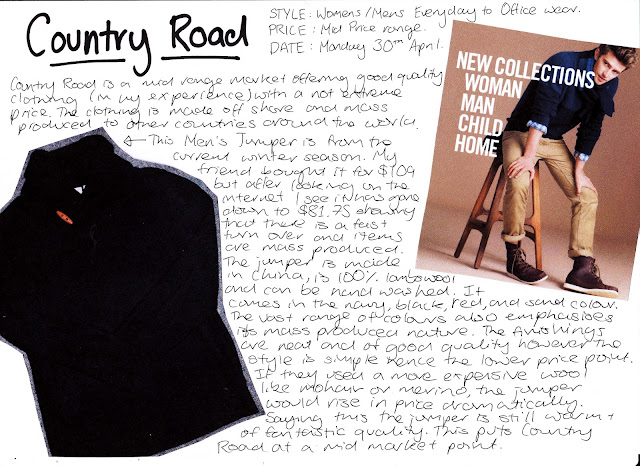 Country Road
STYLE: Womens/Mens Everyday to Office wear.
PRICE: Mid Price range.
DATE: Monday 30th April.
Country Road is a mid range market offering good quality
clothing (in my experience) with a not extreme
price. The clothing is made off shore and mass
produced to other countries around the world.
← This Men's Jumper is from the
current winter season. My
friend bought it for $109
but after looking on the
internet I see it has gone
down to $81.75 showing
that there is a fast
turn over and items
are mass produced.
The jumper is made
in China, is 100% lambswool
and can be hand washed. It
comes in the navy, black, red, and sand colour.
The vast range of colours also emphasises
its mass produced nature. The finishings
are neat and of good quality however the
style is simple hence the lower price point.
If they used a more expensive wool
like mohair or merino, the jumper
would rise in price dramatically.
Saying this the jumper is still warm +
of fantastic quality. This puts Country
Road at a mid market point.
NEW COLLECTIONS
WOMAN
MAN
CHILD
HOME